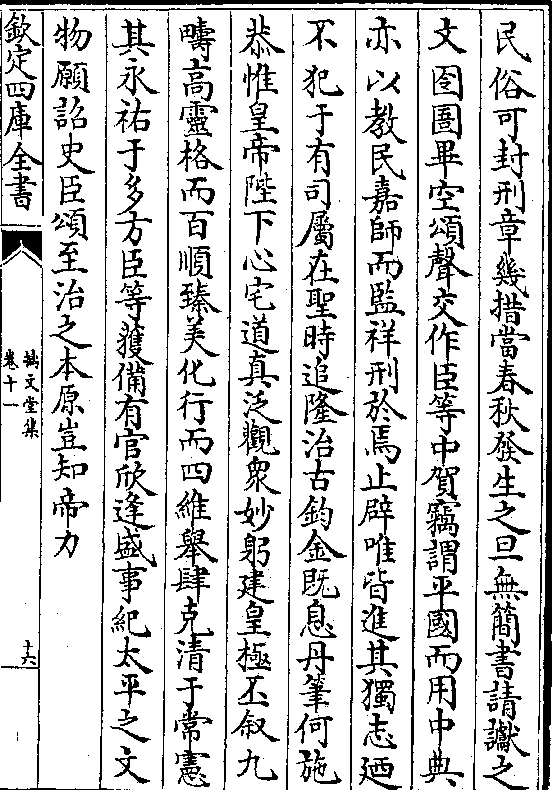 民俗可封刑章幾措當春秋發生之旦無簡書請讞之
文囹圄畢空頌聲交作臣等中賀竊謂平國而用中典
亦以教民嘉師而監祥刑於焉止辟唯皆進其獨志廼
不犯于有司屬在聖時追隆治古鈞金既息丹筆何施
恭惟皇帝陛下心宅道真泛觀衆妙躬建皇極丕叙九
疇高靈格而百順臻美化行而四維舉肆克清于常憲
其永祐于多方臣等獲備有官欣逢盛事紀太平之文
物願詔史臣頌至治之本原豈知帝力
欽定四庫全書
摛文堂集
卷十一
十六